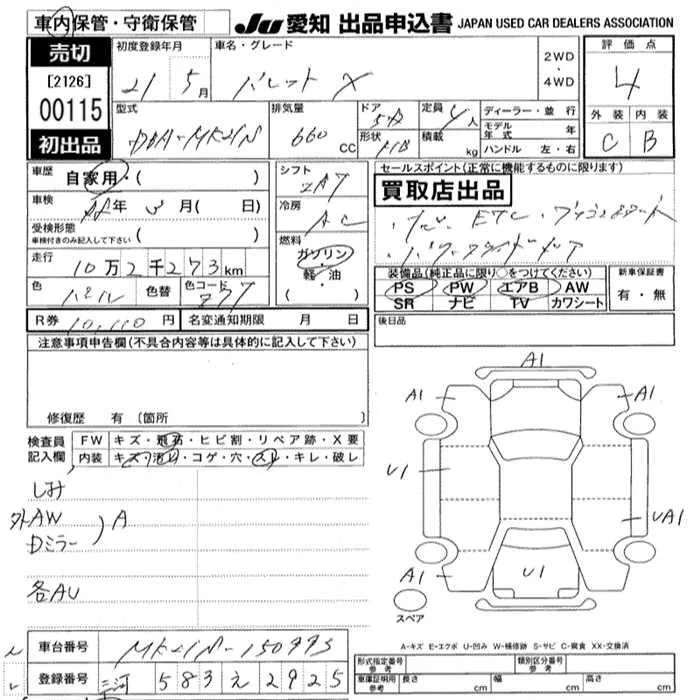 車内保管・守衛保管
JU 愛知 出品申込書 JAPAN USED CAR DEALERS ASSOCIATION
売切
[2126]
00115
初出品
初度登録年月
21 5月
車名・グレード
パレット X
2WD
・
4WD
評価点
4
外装 内装
C B
型式
DBA-MK21S
排気量
660 CC
ドア
形状
定員 4人
積載 kg
ディーラー・並行
モデル年式 年
ハンドル 左・右
車歴 自家用・( )
車検 年 月( 日)
受検形態
車検付きのみ記入して下さい ( )
走行 10万2千273km
色 パール 色替 色コード
R券 10,110円 名変通知期限 月 日
シフト
冷房
AC
燃料
ガソリン
軽・油
・( )
セールスポイント(正常に機能するものに限ります)
買取店出品
・ナビ・ETC・プッシュスタート
・パワースライドドア
装備品(純正品に限り○をつけてください)
PS PW エアB AW
SR ナビ TV カワシート
新車保証書
有・無
後日品
注意事項申告欄(不具合内容等は具体的に記入して下さい)
修復歴 有 〔箇所
検査員記入欄
FW キズ・飛石・ヒビ割・リペア跡・X要
内装 キズ・汚れ・コゲ・穴・スレ・キレ・破レ
しみ
外AW
Dミラー ) A
各AU
A1
A1 A1
U1
UA1
A1 U1 A1
スペア
A-キズ E-エクボ U-凹み W-補修跡 S-サビ C-腐食 XX-交換済
車台番号 MK21S-150993
登録番号 三河 583 え 2925
形式指定番号
参考
類別区分番号
参考
車庫証明用
参考
長さ cm 幅 cm 高さ cm